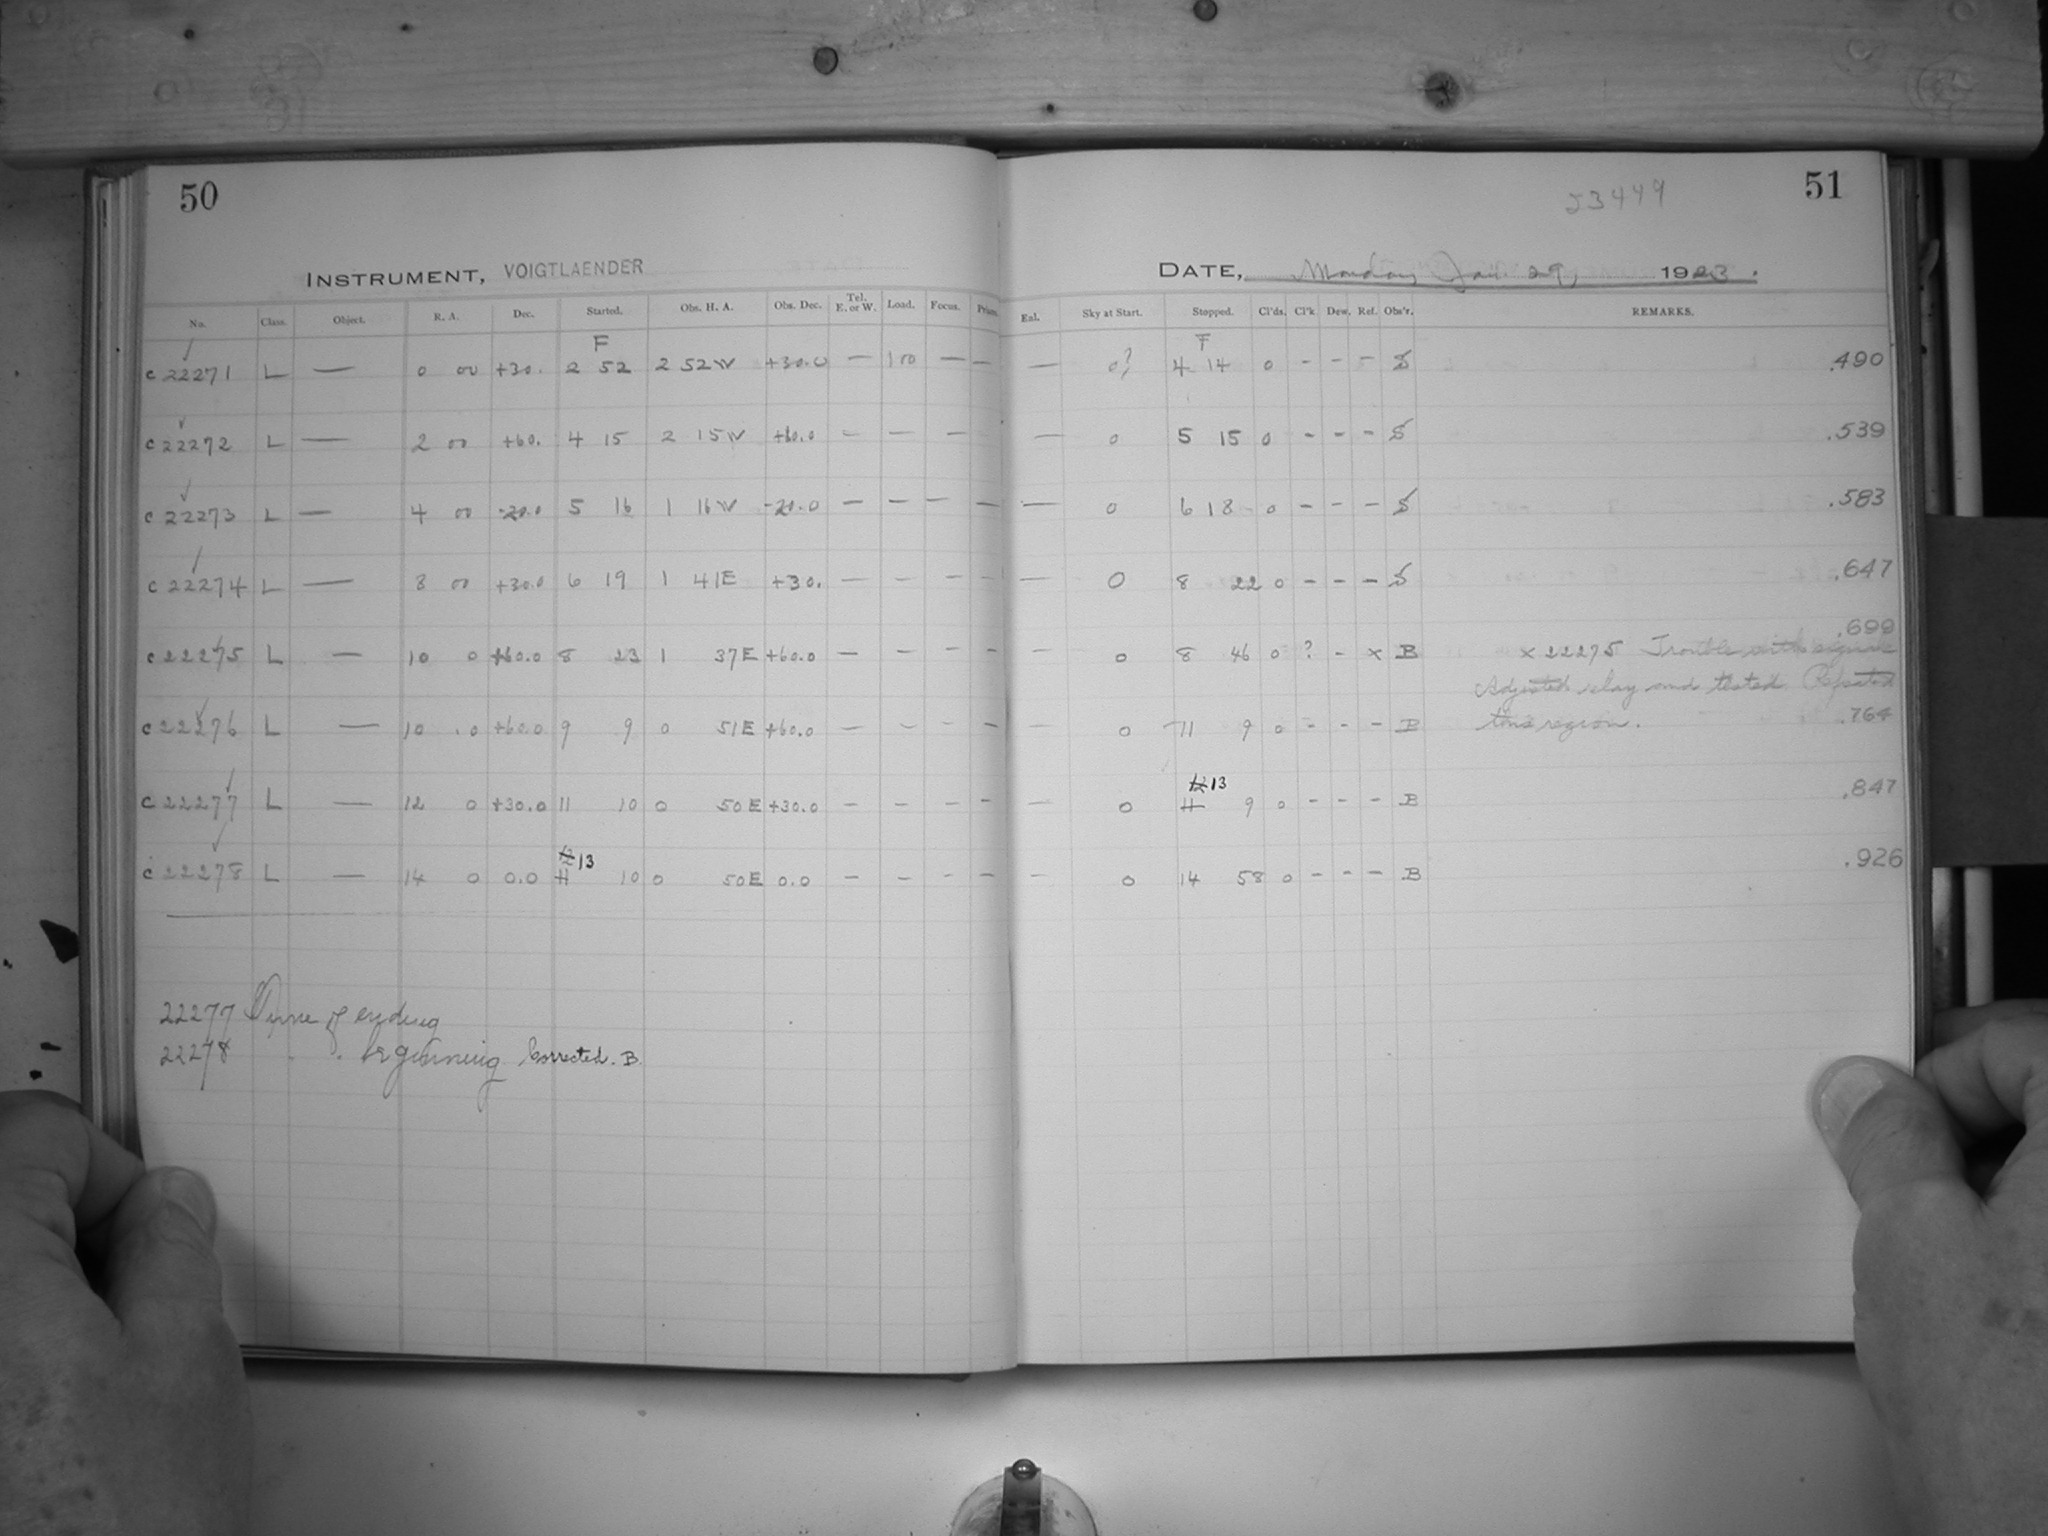 50
51
23449
INSTRUMENT, VOIGTLAENDER
DATE, Monday, Jan. 29, 1923.
No. Class. Object. R. A. Dec. Started. Obs. H. A. Obs. Dec. Tel. E. or W. Load. Focus. Prism. Eal. Sky at Start. Stopped. Cl'ds. Cl'k Dew. Ref. Obs'r. REMARKS.
F F
c 22271 L — 0 00 +30. 2 52 2 52 W +30.0 — 100 — — — 0? 4 14 0 - - - S .490
c 22272 L — 2 00 +60. 4 15 2 15 W +60.0 — — — — — 0 5 15 0 - - - S .539
c 22273 L — 4 00 -20.0 5 16 1 16 W -20.0 — — — — — 0 6 18 0 - - - S .583
c 22274 L — 8 00 +30.0 6 19 1 41 E +30. — — — — — 0 8 22 0 - - - S .647
c 22275 L — 10 0 +60.0 8 23 1 37 E +60.0 — — — — — 0 8 46 0 ? - x B .699
x 22275 Trouble with
Adjusted relay and tested. Repeated
this region.
c 22276 L — 10 0 +60.0 9 9 0 51 E +60.0 — — — — — 0 11 9 0 - - - B .764
12 13
c 22277 L — 12 0 +30.0 11 10 0 50 E +30.0 — — — — — 0 11 9 0 - - - B .847
12 13
c 22278 L — 14 0 0.0 11 10 0 50 E 0.0 — — — — — 0 14 58 0 - - - B .926
22277 Time of ending
22278 " " beginning Corrected. B.